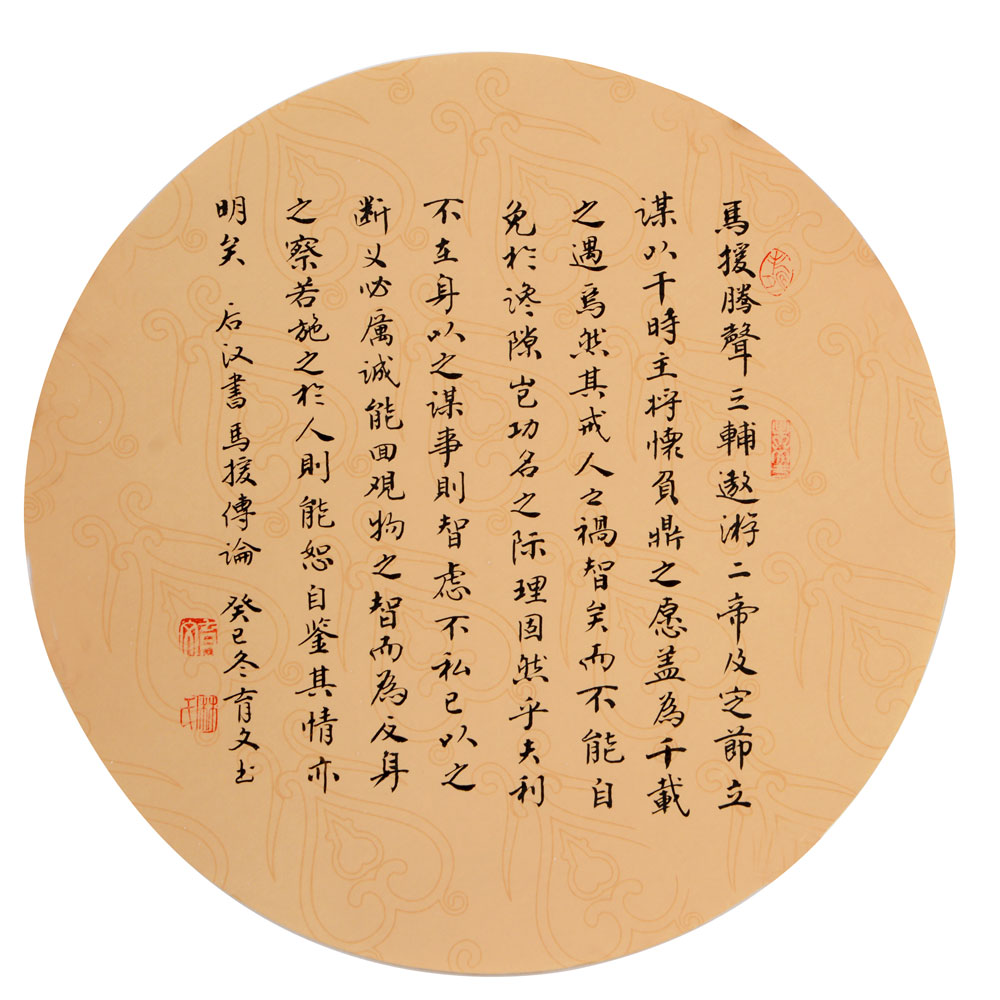 馬援腾聲三輔遨游二帝及定節立
谋以干時主将懷負鼎之愿盖為千載
之遇焉然其戒人之禍智矣而不能自
免於谗隙岂功名之际理固然乎夫利
不在身以之谋事則智虑不私己以之
断义必厲诚能回观物之智而為反身
之察若施之於人則能恕自鉴其情亦
明矣 后汉書馬援傳論 癸巳冬育文书
育文
林氏